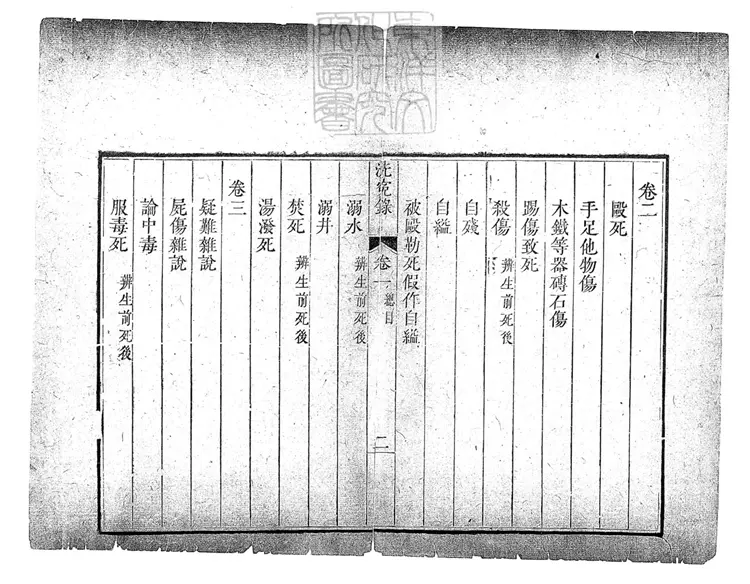 卷二
毆死
手足他物傷
木鐵等器磚石傷
踢傷致死
殺傷 辨生前死後
自殘
自縊
被毆勒死假作自縊
洗寃錄 卷一 總目 二
溺水 辨生前死後
溺井
焚死 辨生前死後
湯潑死
卷三
疑難雜說
屍傷雜說
論中毒
服毒死 辨生前死後